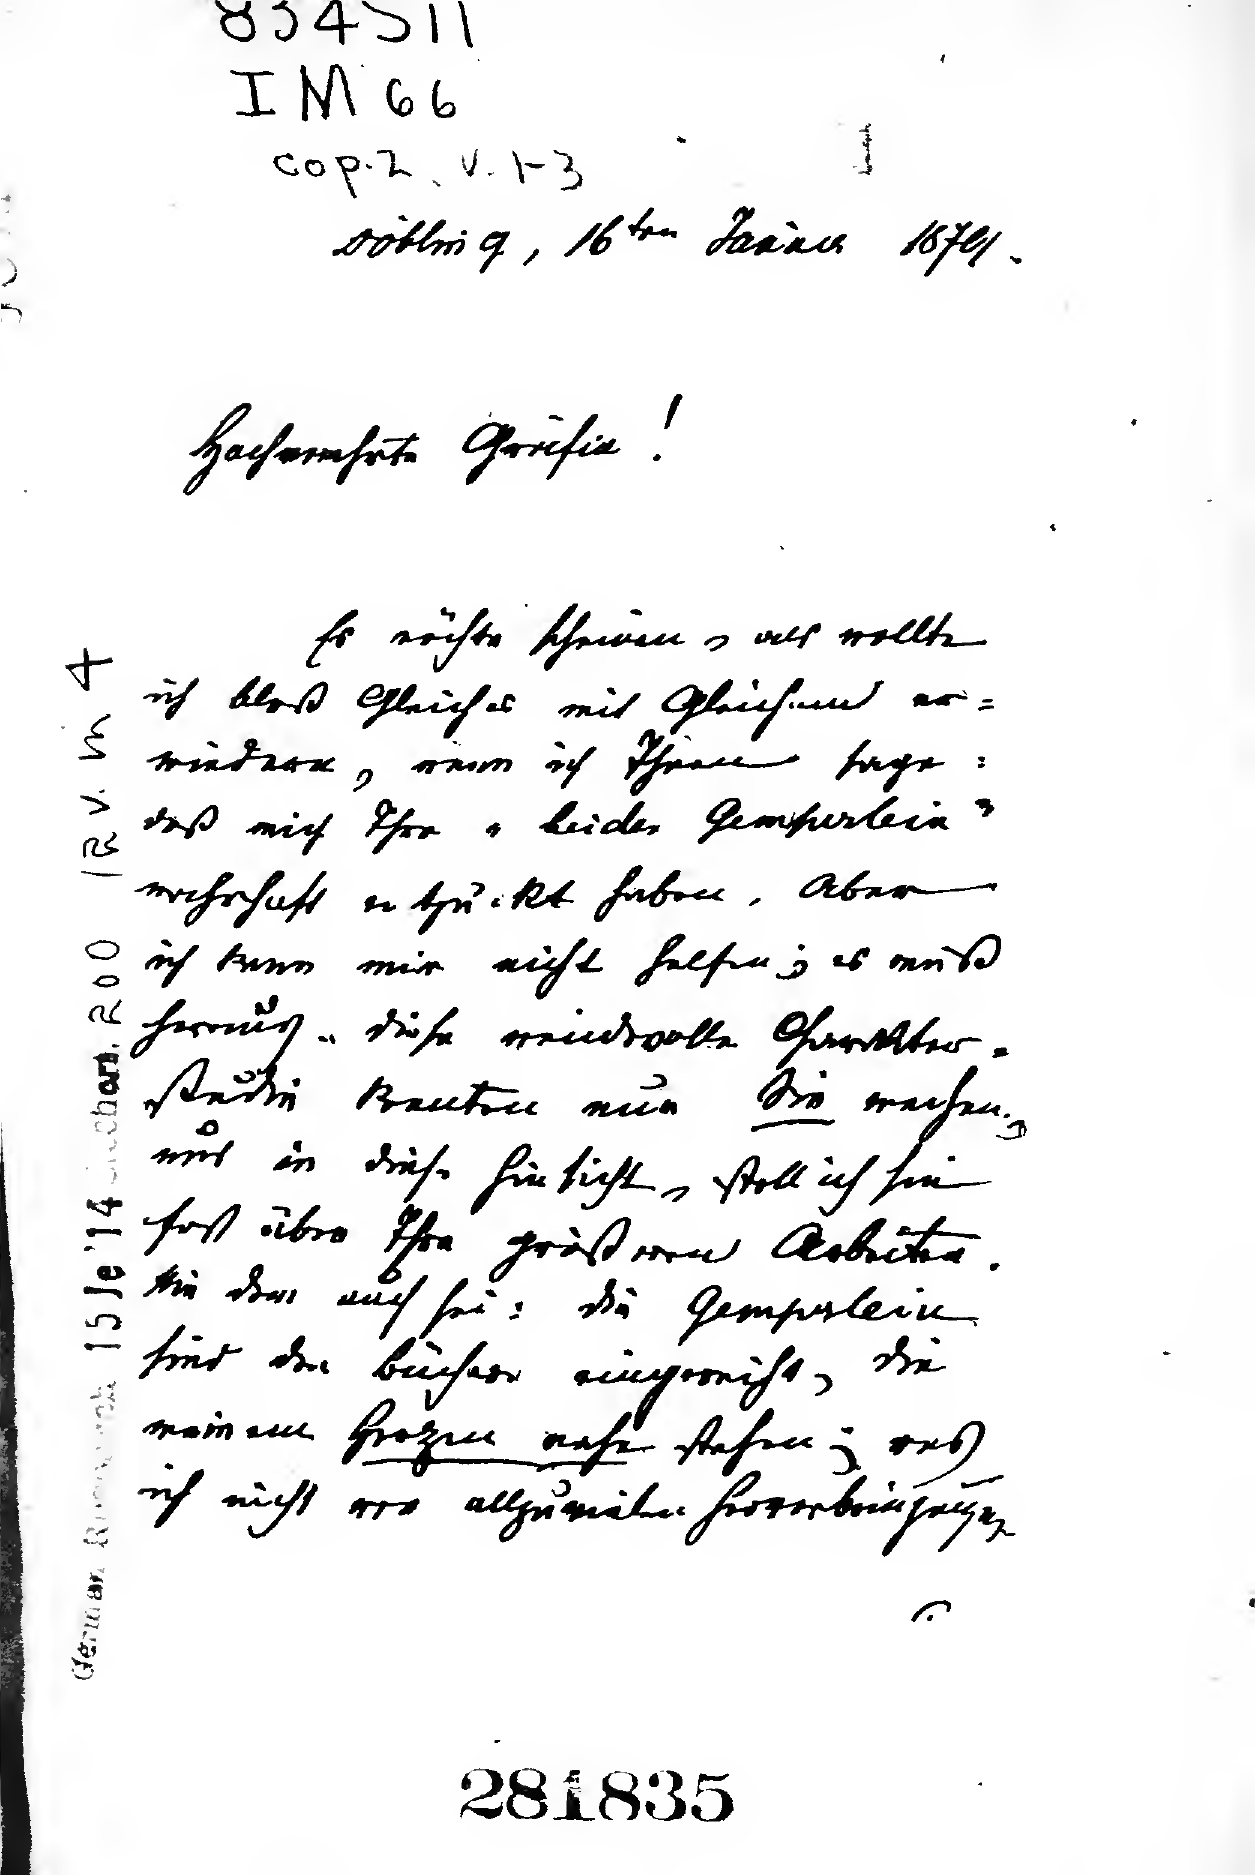 834S11
IM66
cop. 2 v. 1-3
Döbling, 16ten Januar
Hochverehrte Gräfin!
Es möchte scheinen, als wollte
ich bloß Gleiches mit Gleichem er=
wiedern, wenn ich Ihnen sage:
daß mich Ihre "beiden Gemperlein"
wahrhaft entzückt haben. Aber
ich kann mir nicht helfen; es muß
heraus. diese reizvolle Charakter=
studie konnten nur Sie machen;
und in dieser Hinsicht, stell ich sie
fast über Ihre größeren Arbeiten.
Wie dem auch sei: die Gemperlein
sind den Büchern eingereiht, die
meinem Herzen nahe stehen; was
ich nicht von allzuvielen
German 15 Je '14 R00 IR v. in 4
281835